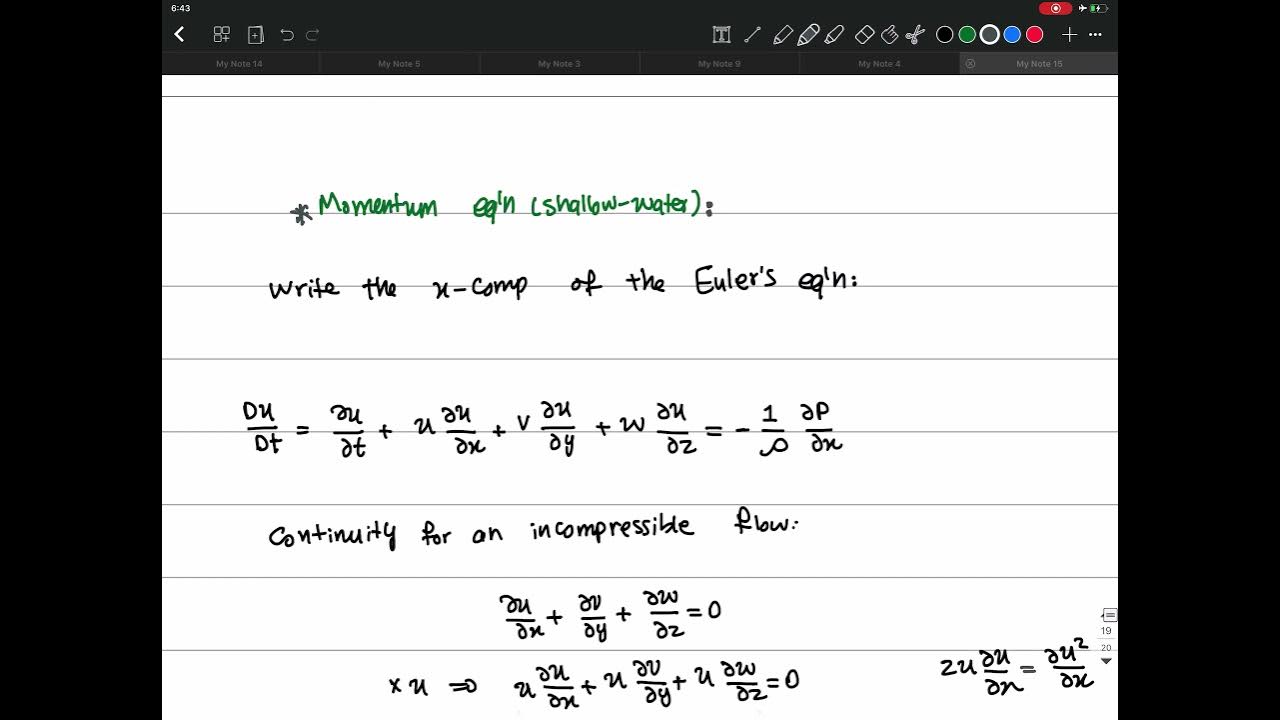 6:43
My Note 14 My Note 5 My Note 3 My Note 9 My Note 4 My Note 15
* Momentum eq'n (shallow-water):
Write the x-comp of the Euler's eq'n:
Du/Dt = ∂u/∂t + u ∂u/∂x + v ∂u/∂y + w ∂u/∂z = - 1/ρ ∂P/∂x
Continuity for an incompressible flow:
∂u/∂x + ∂v/∂y + ∂w/∂z = 0
19
20
× u ⇒ u ∂u/∂x + u ∂v/∂y + u ∂w/∂z = 0
2u ∂u/∂x = ∂u²/∂x